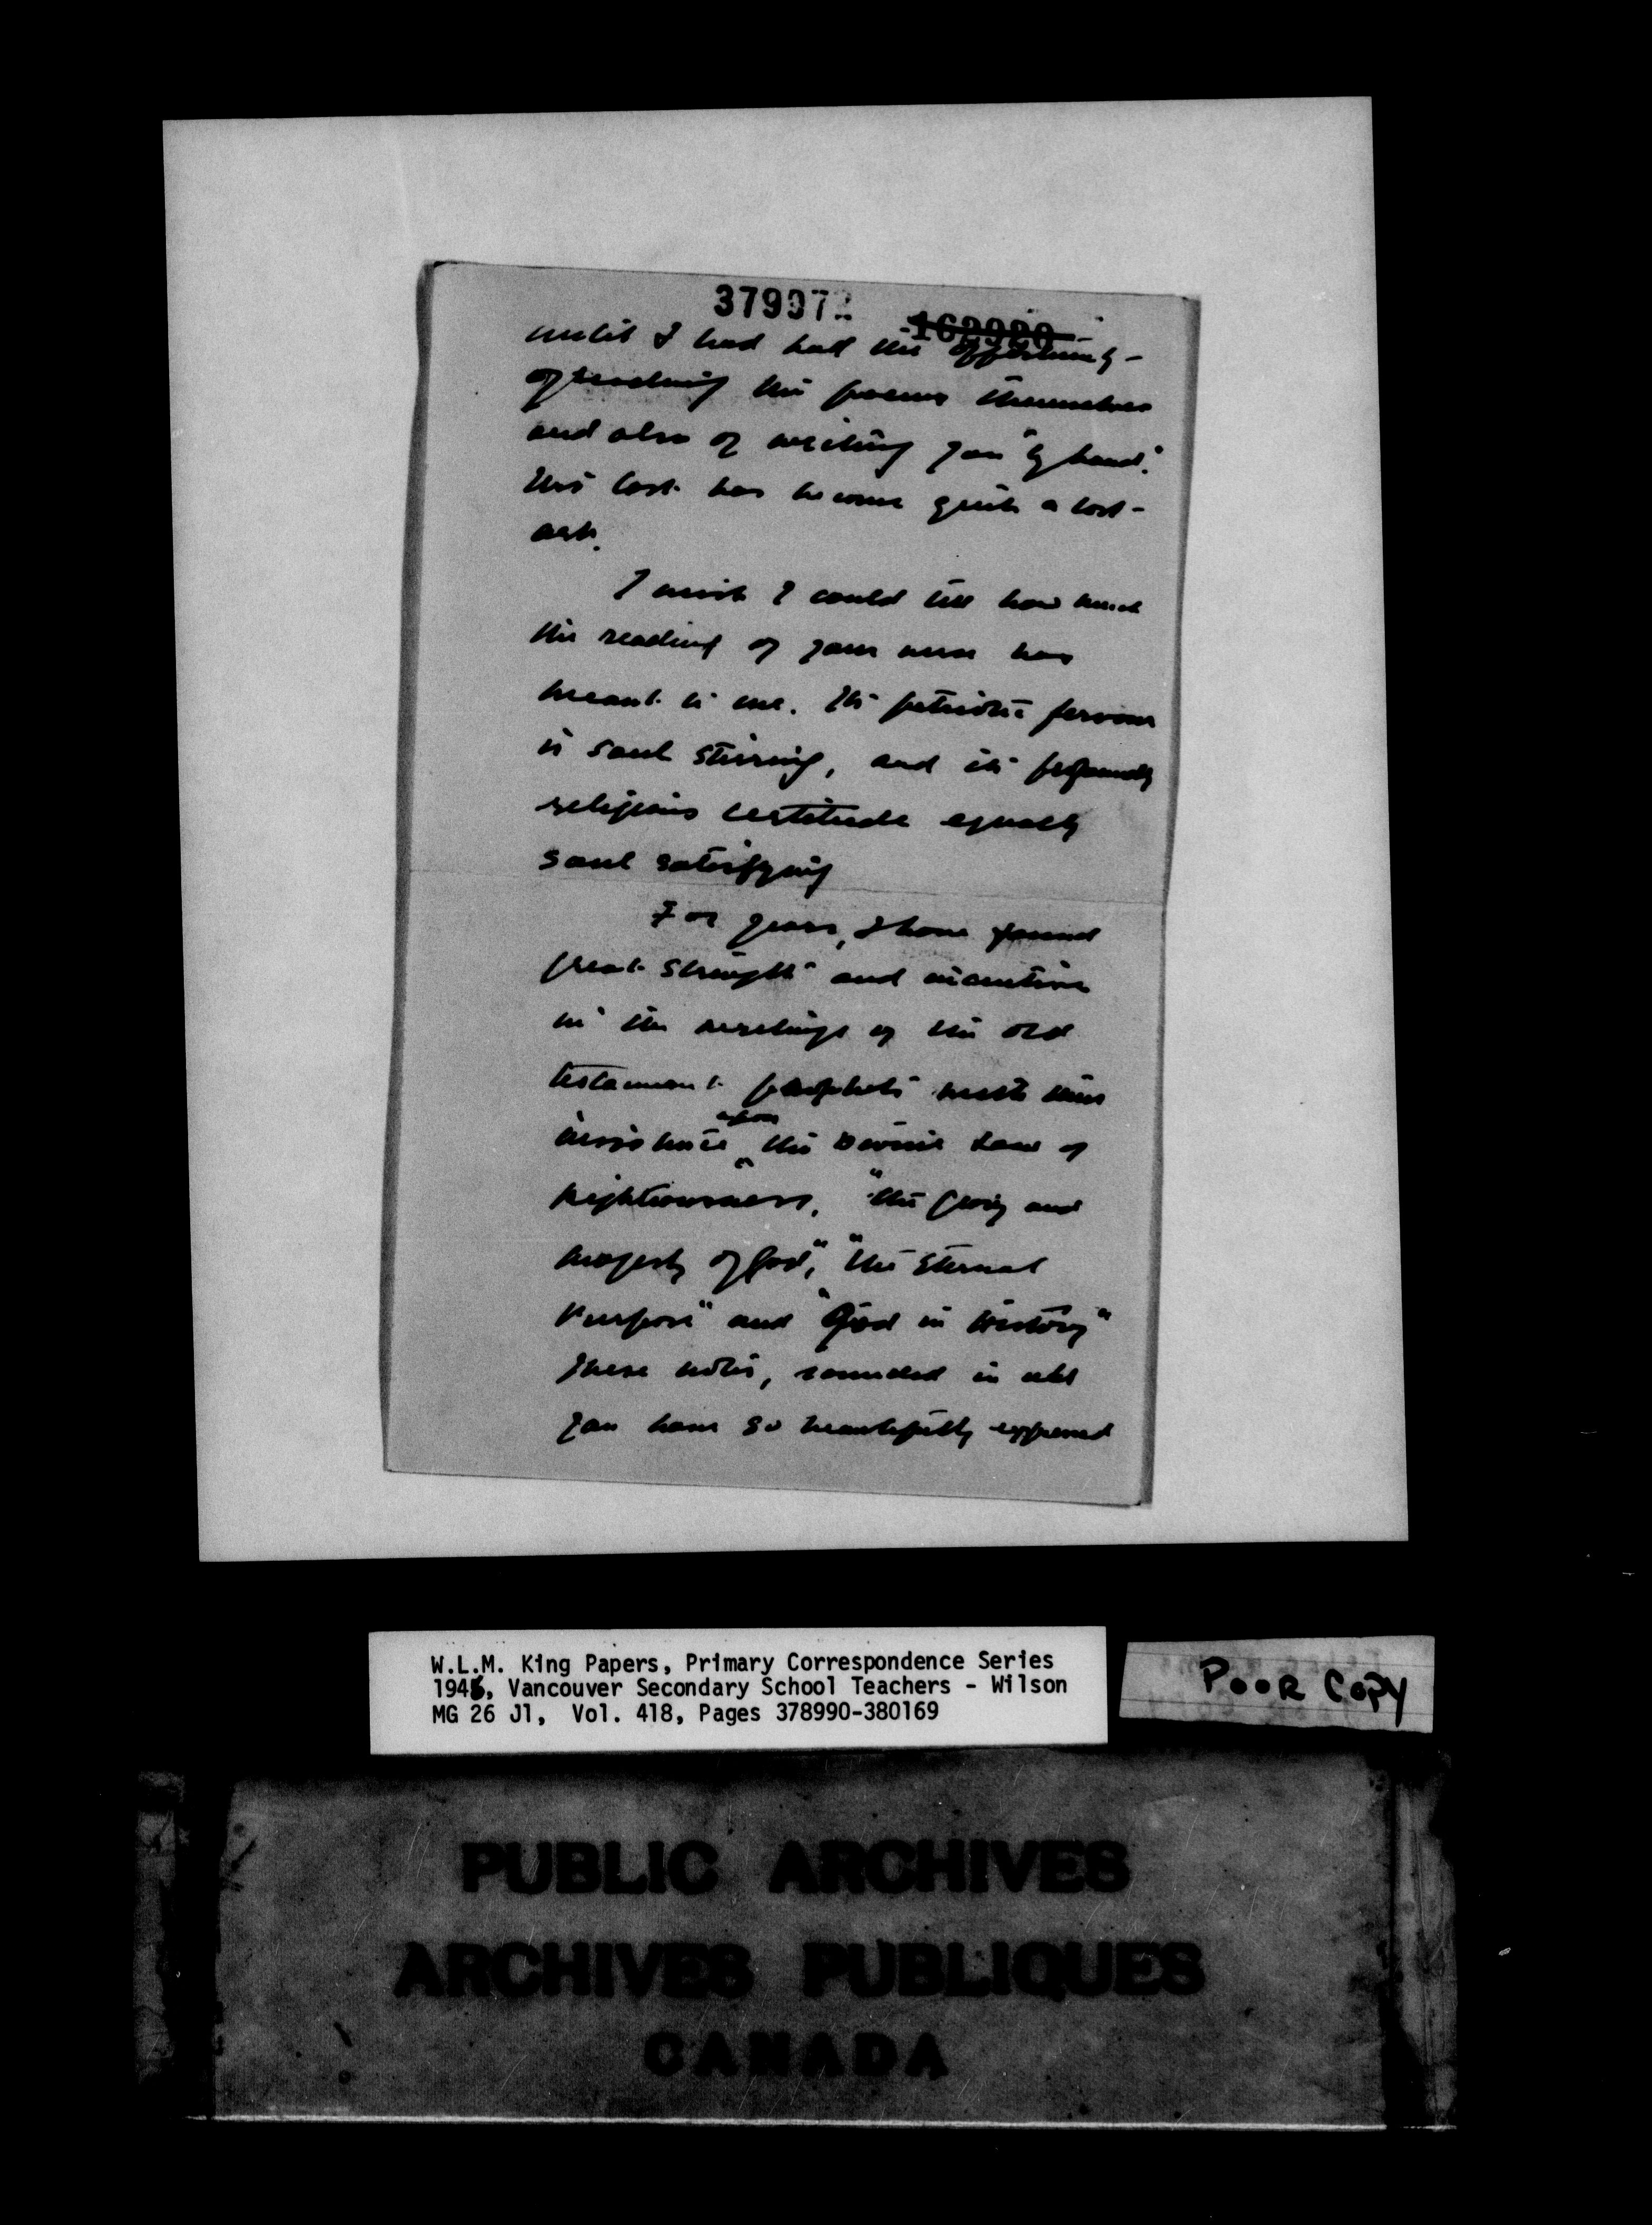 379972 162920
until I had had the opportunity
of reading the poems themselves
and also of writing you "by hand".
This last has become quite a lost
art.
I wish I could tell how much
the reading of your verse has
meant to me. Its patriotic fervour
is soul stirring, and its profoundly
religious certitude equally
soul satisfying
For years, I have found
great strength and incentive
in the writings of the Old
testament prophets with their
upon
insistence the Divine Law of
Righteousness, "the glory and
majesty of God", "the Eternal
Purpose" and "God in History"
These notes, sounded in all
you have so beautifully expressed
W.L.M. King Papers, Primary Correspondence Series
1945, Vancouver Secondary School Teachers - Wilson
MG 26 J1, Vol. 418, Pages 378990-380169
POOR COPY
PUBLIC ARCHIVES
ARCHIVES PUBLIQUES
CANADA